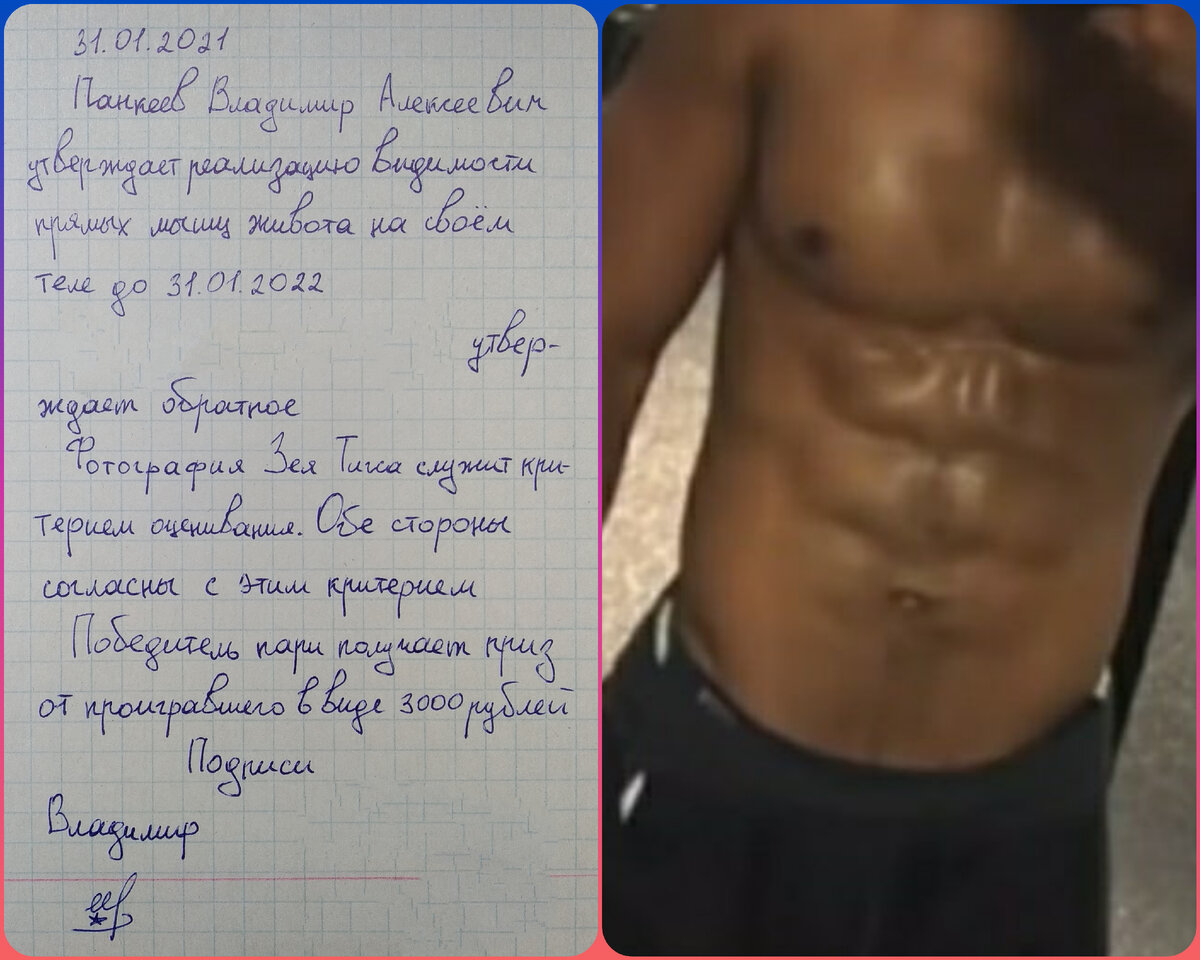 31.01.2021
Панкеев Владимир Алексеевич
утверждает реализацию видимости
прямых мышц живота на своём
теле до 31.01.2022
утвер-
ждает обратное
Фотография Зея Тигса служит кри-
терием оценивания. Обе стороны
согласны с этим критерием
Победитель пари получает приз
от проигравшего в виде 3000 рублей
Подписи
Владимир